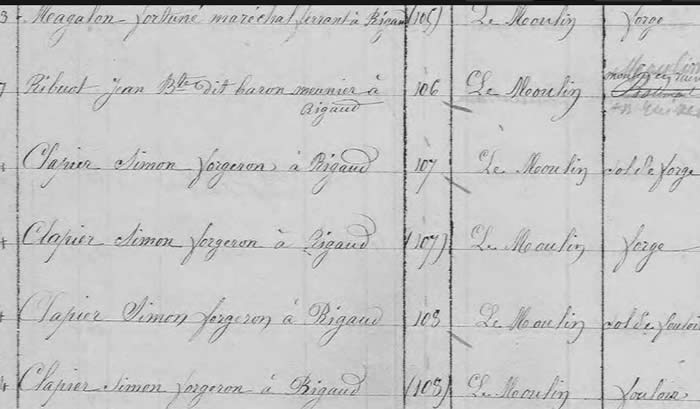 3 Magalon fortuné maréchal ferrant à Rigaud (105) Le Moulin forge
7 Ribuot jean Bte dit baron meunier à Rigaud 106 Le Moulin
Clapier Simon forgeron à Rigaud 107 Le Moulin sol de forge
4 Clapier Simon forgeron à Rigaud (107) Le Moulin forge
4 Clapier Simon forgeron à Rigaud 108 Le Moulin sol de fouloir
4 Clapier Simon forgeron à Rigaud (108) Le Moulin fouloir